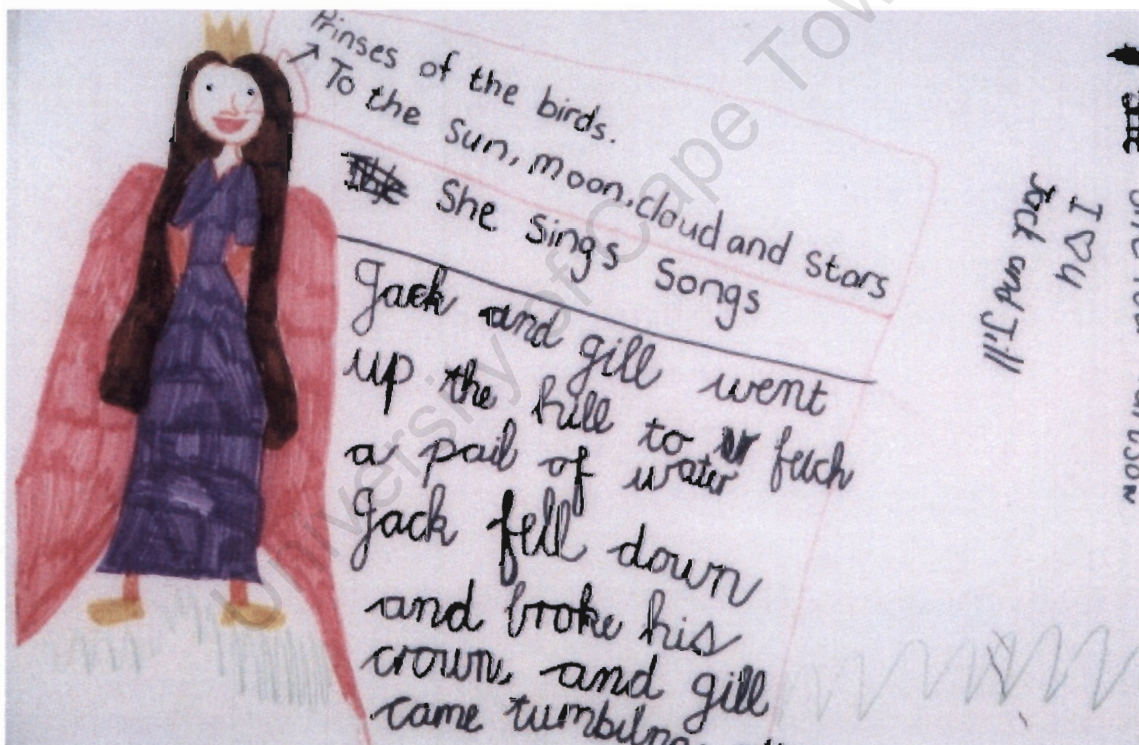 Prinses of the birds.
To the sun, moon, cloud and stars
She sings songs
Jack and gill went
up the hill to fetch
a pail of water
Jack fell down
and broke his
crown, and gill
came tumbilng
I saw
Jack and Jill
University of Cape Town